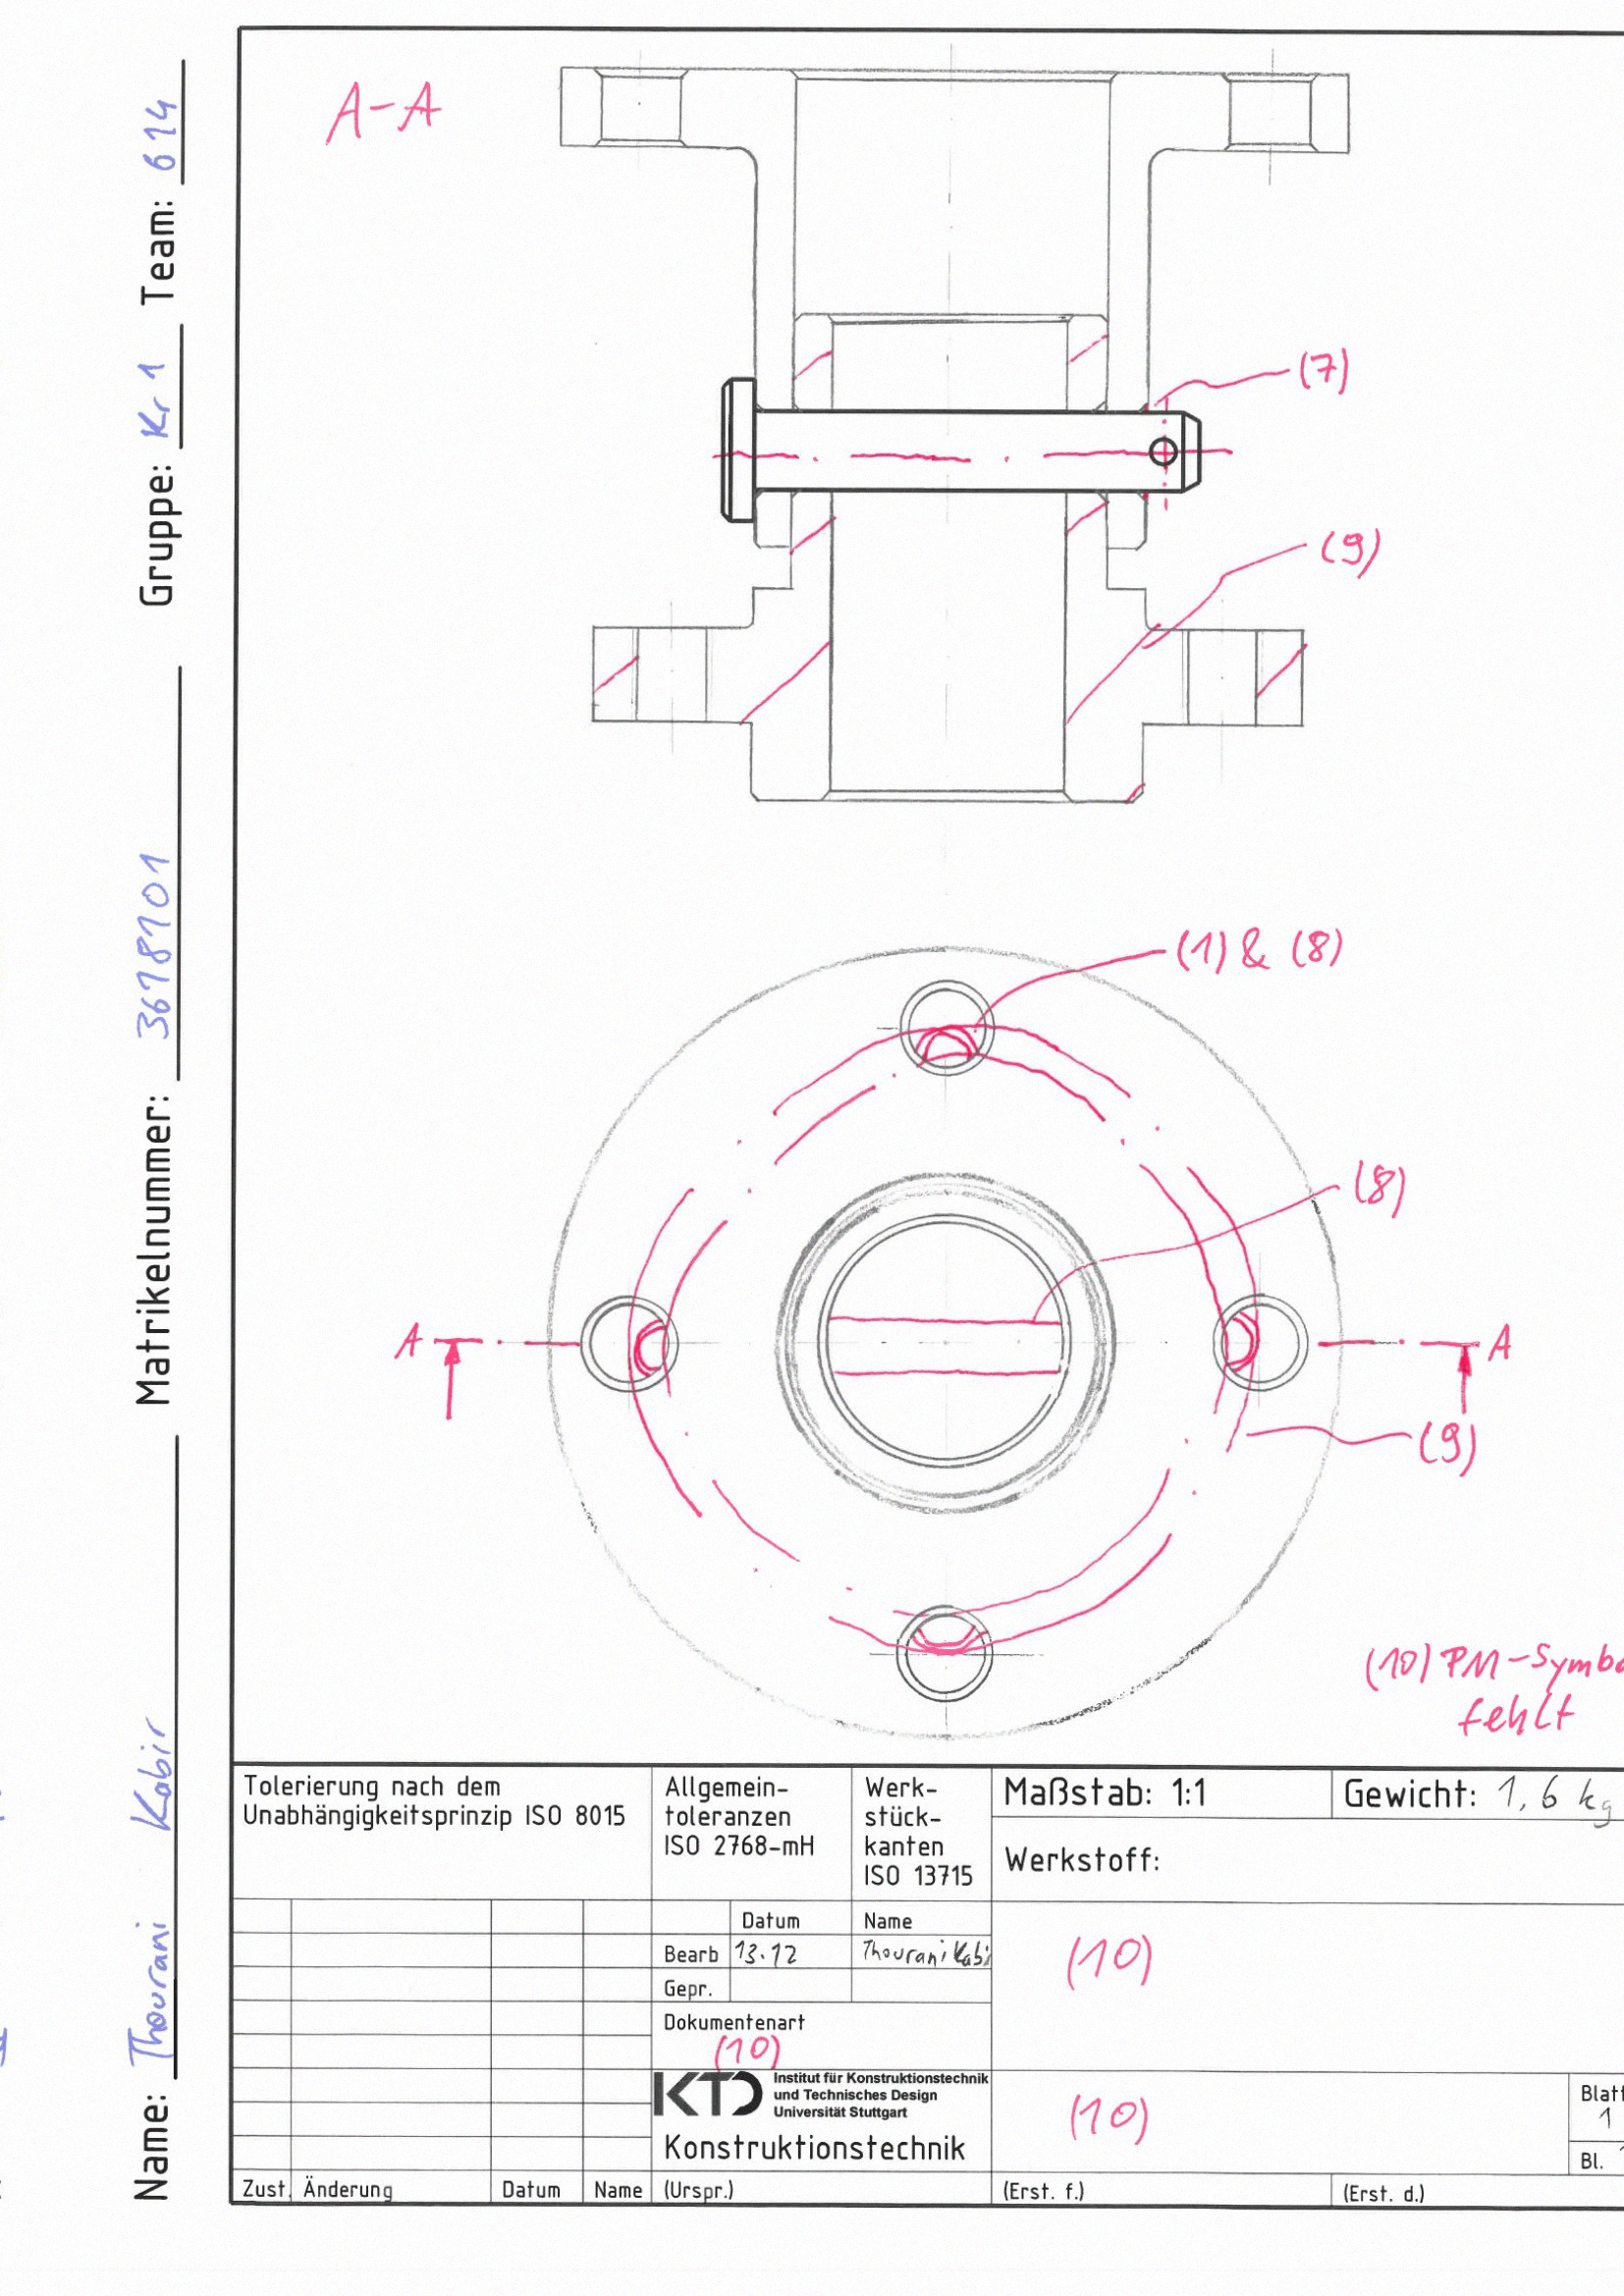 A-A
(7)
(9)
(1) & (8)
(8)
A
A
(9)
(10) PM-Symbo
fehlt
Name: Thourani Kabir Matrikelnummer: 3678101 Gruppe: Kr 1 Team: 614
Tolerierung nach dem
Unabhängigkeitsprinzip ISO 8015
Allgemein-
toleranzen
ISO 2768-mH
Werk-
stück-
kanten
ISO 13715
Maßstab: 1:1
Gewicht: 1,6 kg
Werkstoff:
Datum Name
Bearb 13.12 Thourani Kabi
Gepr.
(10)
Dokumentenart
(10)
KTD Institut für Konstruktionstechnik
und Technisches Design
Universität Stuttgart
Konstruktionstechnik
(10)
Blatt
1
Bl.
Zust. Änderung Datum Name (Urspr.) (Erst. f.) (Erst. d.)